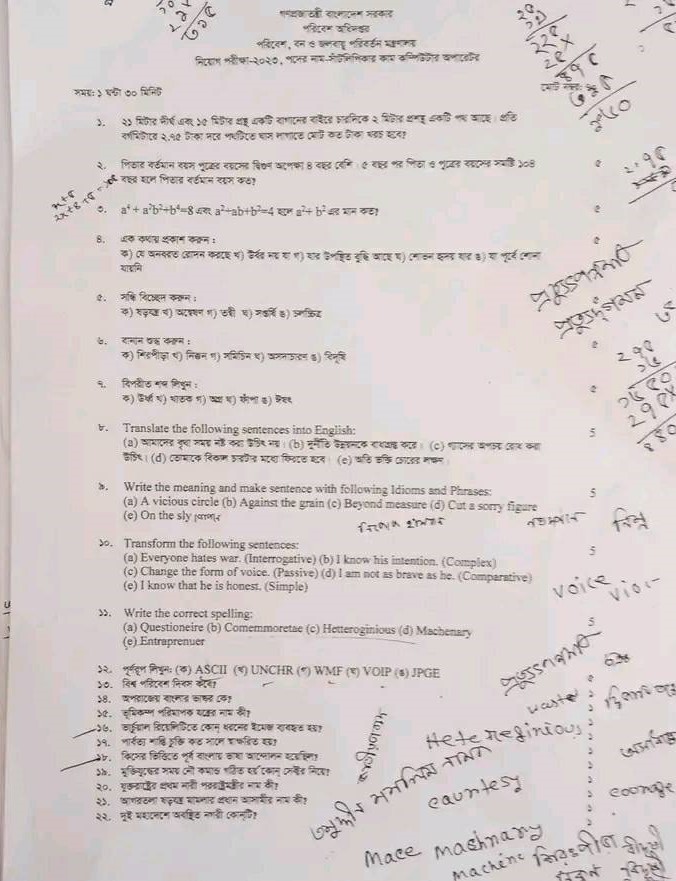 গণপ্রজাতন্ত্রী বাংলাদেশ সরকার
পরিবেশ অধিদপ্তর
পরিবেশ, বন ও জলবায়ু পরিবর্তন মন্ত্রণালয়
নিয়োগ পরীক্ষা-২০২৩, পদের নাম-সাঁটলিপিকার কাম কম্পিউটার অপারেটর
সময়: ১ ঘন্টা ৩০ মিনিট
মোট নম্বর:
১. ২১ মিটার দীর্ঘ এবং ১৫ মিটার প্রস্থ একটি বাগানের বাইরে চারদিকে ২ মিটার প্রশস্ত একটি পথ আছে। প্রতি
বর্গমিটারে ২.৭৫ টাকা দরে পথটিতে ঘাস লাগাতে মোট কত টাকা খরচ হবে?
২. পিতার বর্তমান বয়স পুত্রের বয়সের দ্বিগুণ অপেক্ষা ৪ বছর বেশি। ৫ বছর পর পিতা ও পুত্রের বয়সের সমষ্টি ১০৪ ৫
বছর হলে পিতার বর্তমান বয়স কত?
৩. a⁴ + a²b²+b⁴=8 এবং a²+ab+b²=4 হলে a²+ b² এর মান কত? ৫
৪. এক কথায় প্রকাশ করুন : ৫
ক) যে অনবরত রোদন করছে খ) উর্বর নয় যা গ) যার উপস্থিত বুদ্ধি আছে ঘ) শোভন হৃদয় যার ঙ) যা পূর্বে শোনা
যায়নি
৫. সন্ধি বিচ্ছেদ করুন :
ক) ষড়যন্ত্র খ) অন্বেষণ গ) তন্বী ঘ) সপ্তর্ষি ঙ) চলচ্চিত্র
৬. বানান শুদ্ধ করুন : ৫
ক) শিরপীড়া খ) নিক্কন গ) সমিচিন ঘ) অসদাচারণ ঙ) বিদূষি
৭. বিপরীত শব্দ লিখুন : ৫
ক) ঊর্ধ্ব খ) ঘাতক গ) অগ্র ঘ) ফাঁপা ঙ) ঈষৎ
৮. Translate the following sentences into English: 5
(a) আমাদের বৃথা সময় নষ্ট করা উচিৎ নয়। (b) দুর্নীতি উন্নয়নকে বাধাগ্রস্ত করে। (c) গ্যাসের অপচয় রোধ করা
উচিৎ। (d) তোমাকে বিকাল চারটার মধ্যে ফিরতে হবে। (e) অতি ভক্তি চোরের লক্ষন।
৯. Write the meaning and make sentence with following Idioms and Phrases: 5
(a) A vicious circle (b) Against the grain (c) Beyond measure (d) Cut a sorry figure
(e) On the sly
১০. Transform the following sentences: 5
(a) Everyone hates war. (Interrogative) (b) I know his intention. (Complex)
(c) Change the form of voice. (Passive) (d) I am not as brave as he. (Comparative)
(e) I know that he is honest. (Simple)
voice
১১. Write the correct spelling: 5
(a) Questioneire (b) Comemmoretae (c) Hetteroginious (d) Machenary
(e) Entraprenuer
১২. পূর্ণরূপ লিখুন: (ক) ASCII (খ) UNCHR (গ) WMF (ঘ) VOIP (ঙ) JPGE
১৩. বিশ্ব পরিবেশ দিবস কবে?
১৪. অপরাজেয় বাংলার ভাস্কর কে?
১৫. ভূমিকম্প পরিমাপক যন্ত্রের নাম কী?
১৬. ভার্চুয়াল রিয়েলিটিতে কোন্ ধরনের ইমেজ ব্যবহৃত হয়?
১৭. পার্বত্য শান্তি চুক্তি কত সালে স্বাক্ষরিত হয়?
১৮. কিসের ভিত্তিতে পূর্ব বাংলায় ভাষা আন্দোলন হয়েছিল?
১৯. মুক্তিযুদ্ধের সময় নৌ কমান্ড গঠিত হয় কোন্ সেক্টর নিয়ে?
২০. যুক্তরাষ্ট্রের প্রথম নারী পররাষ্ট্রমন্ত্রীর নাম কী?
২১. আগরতলা ষড়যন্ত্র মামলার প্রধান আসামীর নাম কী?
২২. দুই মহাদেশে অবস্থিত নগরী কোনটি?
wasted
Heteroeginious
cauntesy
courage
Mace machnary
machine